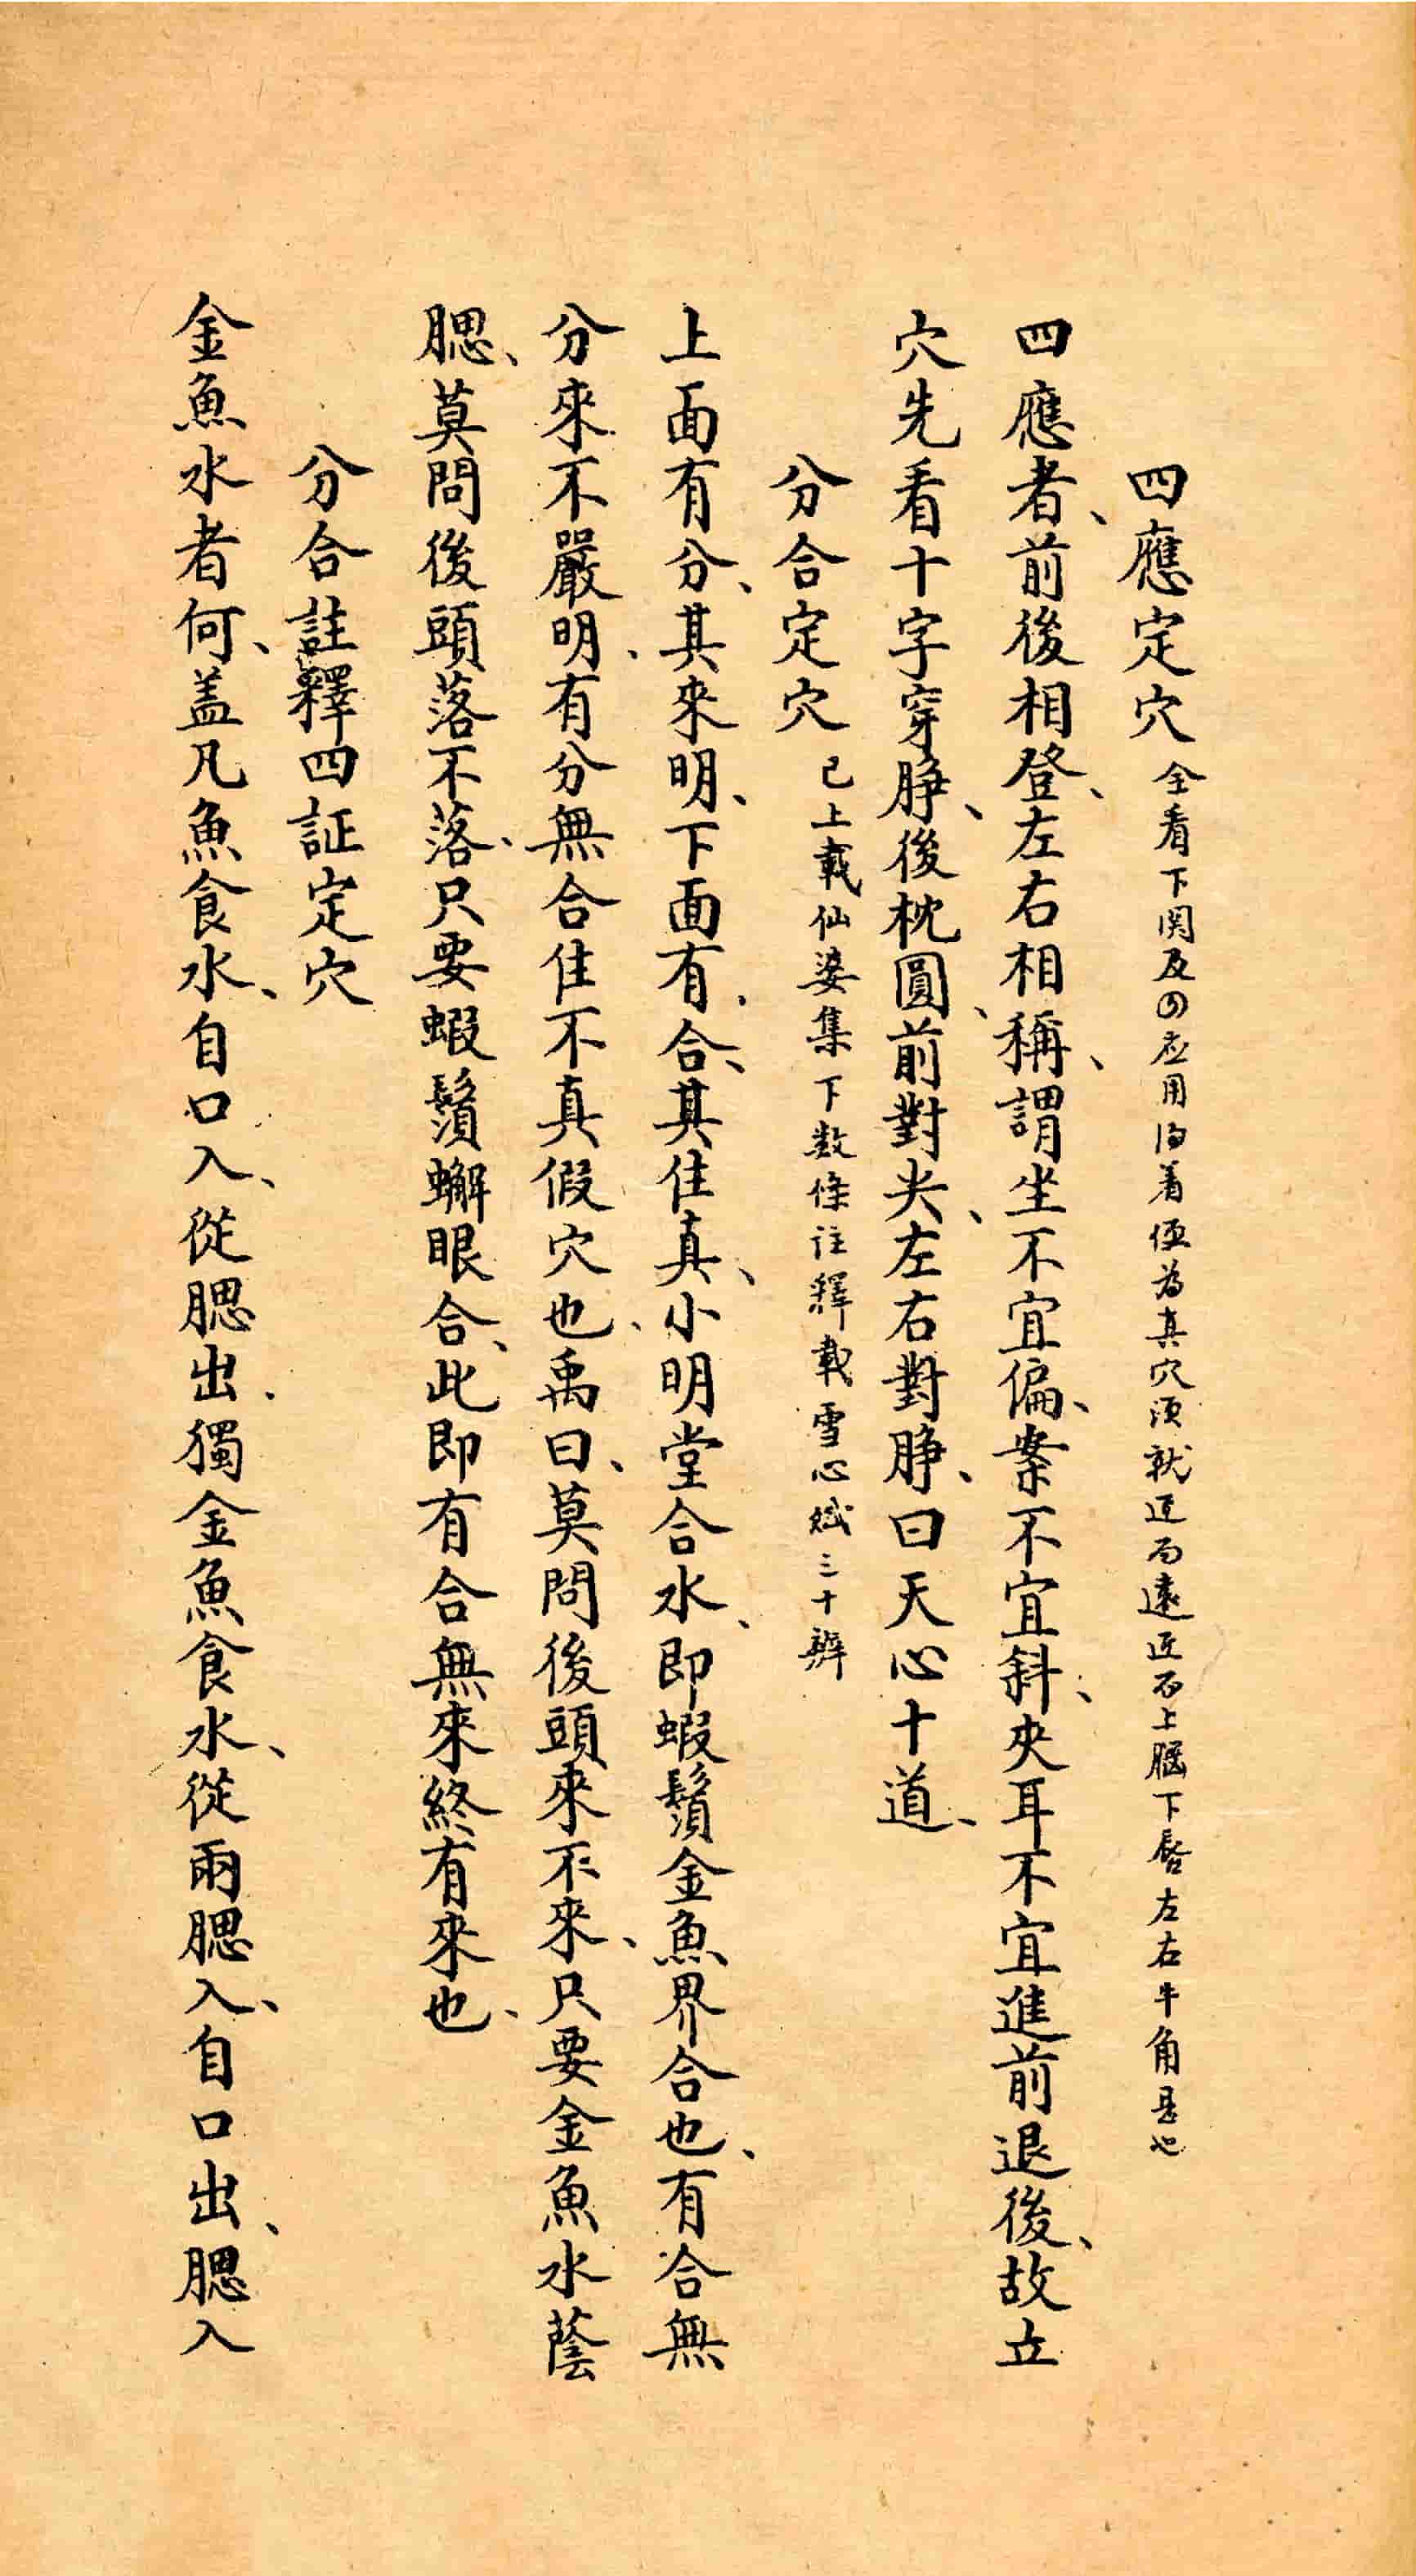 四應定穴 全看下関及四应用得着便為真穴須就近而遠近而上腦下唇左右牛角是也
四應者、前後相登、左右相稱、謂坐不宜偏、案不宜斜、夾耳不宜進前退後、故立
穴先看十字穿腁、後枕圓、前對尖、左右對腁、曰天心十道、
分合定穴 已上載仙婆集下数條注釋載雪心賦三十辨
上面有分、其來明、下面有合、其住真、小明堂合水、即蝦鬚金魚界合也、有合無
分來不嚴明、有分無合住不真假穴也、禹曰、莫問後頭來不來、只要金魚水蔭
腮、莫問後頭落不落、只要蝦鬚蠏眼合、此即有合無來終有來也、
分合註釋四証定穴
金魚水者何、盖凡魚食水、自口入、從腮出、獨金魚食水、從兩腮入、自口出、腮入